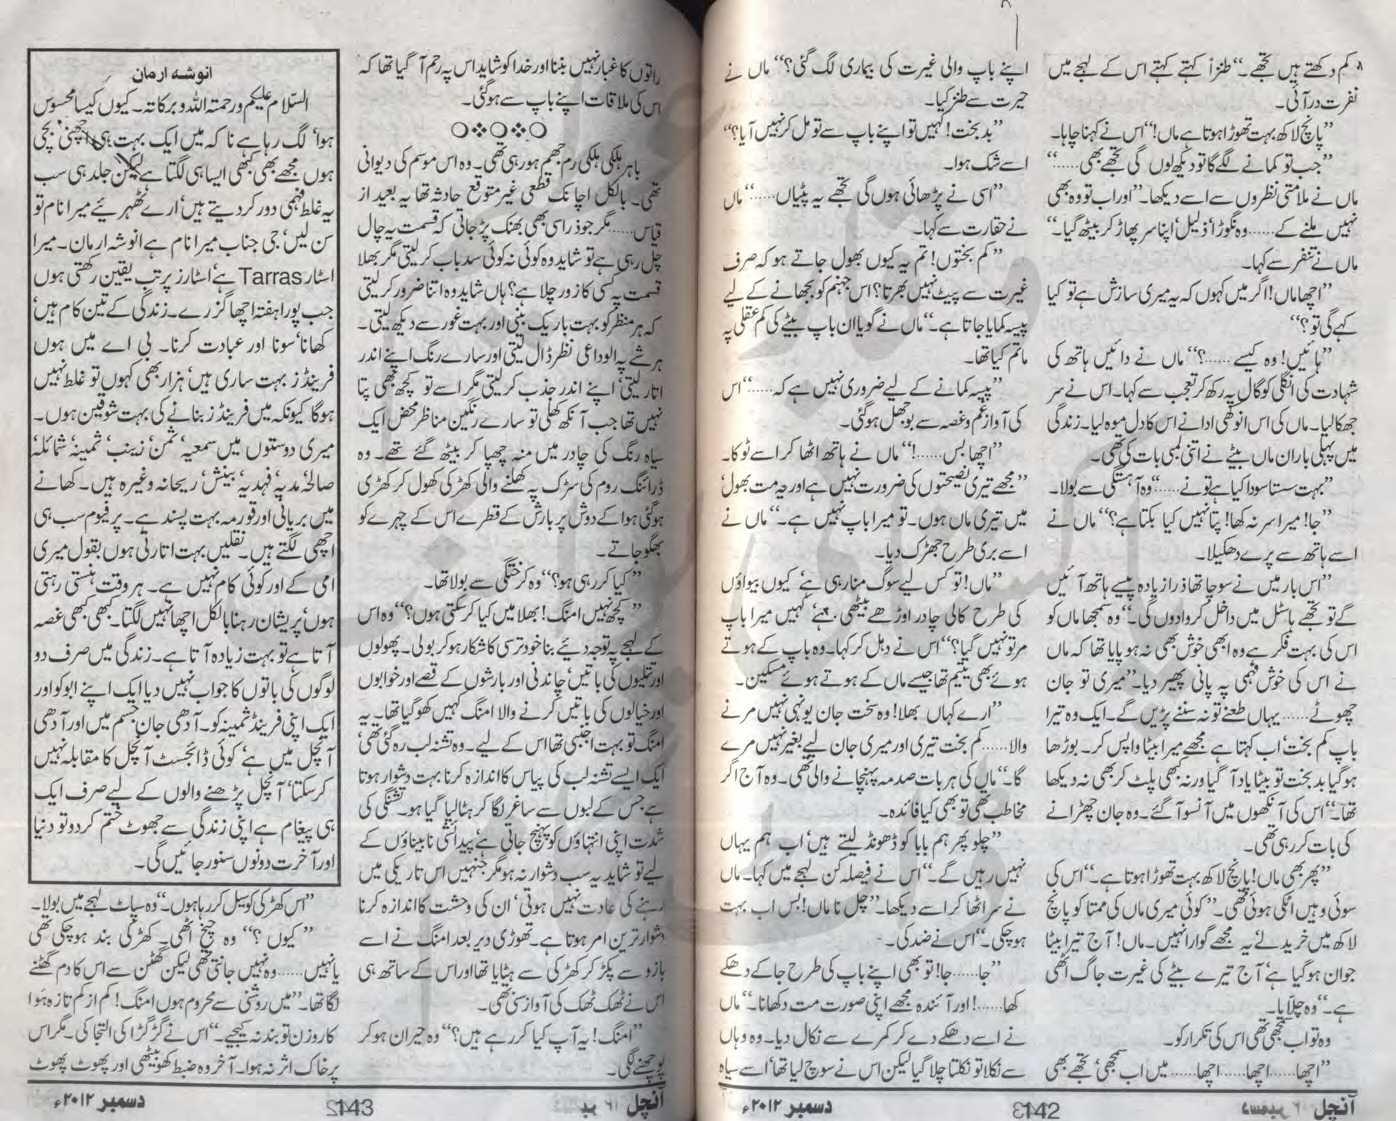 ۸ کم دکھتے ہیں تجھے۔“ طنزاً کہتے کہتے اس کے لہجے میں
نفرت در آئی۔
”پانچ لاکھ بہت تھوڑا ہوتا ہے ماں!“ اس نے کہنا چاہا۔
”جب تو کمانے لگے گا تو دیکھ لوں گی تجھے بھی......“
ماں نے ملامتی نظروں سے اسے دیکھا۔ ”اور اب تو وہ بھی
نہیں ملنے کے...... وہ نگوڑا‘ ذلیل‘ اپنا سر پھاڑ کر بیٹھ گیا۔“
ماں نے تنفر سے کہا۔
”اچھا ماں! اگر میں کہوں کہ یہ میری سازش ہے تو کیا
کہے گی تو؟“
”ہائیں! وہ کیسے......؟“ ماں نے دائیں ہاتھ کی
شہادت کی انگلی کو گال پہ رکھ کر تعجب سے کہا۔ اس نے سر
جھکا لیا۔ ماں کی اس انوکھی ادا نے اس کا دل موہ لیا۔ زندگی
میں پہلی بار ان ماں بیٹے نے اتنی لمبی بات کی تھی۔
”بہت سستا سودا کیا ہے تو نے......“ وہ آہستگی سے بولا۔
”جا! میرا سر نہ کھا! پتا نہیں کیا بکتا ہے؟“ ماں نے
اسے ہاتھ سے پرے دھکیلا۔
”اس بار میں نے سوچا تھا ذرا زیادہ پیسے ہاتھ آئیں
گے تو تجھے ہاسٹل میں داخل کروا دوں گی۔“ وہ سمجھا ماں کو
اس کی بہت فکر ہے وہ ابھی خوش بھی نہ ہو پایا تھا کہ ماں
نے اس کی خوش فہمی پہ پانی پھیر دیا۔ ”میری تو جان
چھوٹے...... یہاں طعنے تو نہ سننے پڑیں گے۔ ایک وہ تیرا
باپ کم بخت‘ اب کہتا ہے مجھے میرا بیٹا واپس کر۔ بوڑھا
ہو گیا بد بخت تو بیٹا یاد آ گیا ورنہ کبھی پلٹ کر بھی نہ دیکھا
تھا۔“ اس کی آنکھوں میں آنسو آ گئے۔ وہ جان چھڑانے
کی بات کر رہی تھی۔
”پھر بھی ماں! پانچ لاکھ بہت تھوڑا ہوتا ہے۔“ اس کی
سوئی وہیں اٹکی ہوئی تھی۔ ”کوئی میری ماں کی ممتا کو پانچ
لاکھ میں خرید لے یہ مجھے گوارا نہیں۔ ماں! آج تیرا بیٹا
جوان ہو گیا ہے‘ آج تیرے بیٹے کی غیرت جاگ اٹھی
ہے۔“ وہ چلایا۔
وہ تو اب سمجھی تھی اس کی تکرار کو۔
”اچھا...... اچھا...... اچھا...... میں اب سمجھی‘ تجھے بھی
اپنے باپ والی غیرت کی بیماری لگ گئی؟“ ماں نے
حیرت سے طنز کیا۔
”بدبخت! کہیں تو اپنے باپ سے تو مل کر نہیں آیا؟“
اسے شک ہوا۔
”اسی نے پڑھائی ہوں گی تجھے یہ پٹیاں......“ ماں
نے حقارت سے کہا۔
”کم بختوں! تم یہ کیوں بھول جاتے ہو کہ صرف
غیرت سے پیٹ نہیں بھرتا؟ اس جہنم کو بجھانے کے لیے
پیسہ کمایا جاتا ہے۔“ ماں نے گویا ان باپ بیٹے کی کم عقلی پہ
ماتم کیا تھا۔
”پیسہ کمانے کے لیے ضروری نہیں ہے کہ......“ اس
کی آواز غم و غصہ سے بوجھل ہو گئی۔
”اچھا بس......!“ ماں نے ہاتھ اٹھا کر اسے ٹوکا۔
”مجھے تیری نصیحتوں کی ضرورت نہیں ہے اور یہ مت بھول‘
میں تیری ماں ہوں۔ تو میرا باپ نہیں ہے۔“ ماں نے
اسے بری طرح جھڑک دیا۔
”ماں! تو کس لیے سوگ منا رہی ہے‘ کیوں بیواؤں
کی طرح کالی چادر اوڑھے بیٹھی ہے‘ کہیں میرا باپ
مر تو نہیں گیا؟“ اس نے دہل کر کہا۔ وہ باپ کے ہوتے
ہوئے بھی یتیم تھا جیسے ماں کے ہوتے ہوئے مسکین۔
”ارے کہاں بھلا! وہ سخت جان یونہی نہیں مرنے
والا...... کم بخت تیری اور میری جان لیے بغیر نہیں مرے
گا۔“ ماں کی ہر بات صدمہ پہنچانے والی تھی۔ وہ آج اگر
مخاطب تھی تو بھی کیا فائدہ۔
”چلو پھر ہم بابا کو ڈھونڈ لیتے ہیں‘ اب ہم یہاں
نہیں رہیں گے۔“ اس نے فیصلہ کن لہجے میں کہا۔ ماں
نے سر اٹھا کر اسے دیکھا۔ ”چل نا ماں! بس اب بہت
ہو چکی۔“ اس نے ضد کی۔
”جا...... جا! تو بھی اپنے باپ کی طرح جا کے دھکے
کھا......! اور آئندہ مجھے اپنی صورت مت دکھانا۔“ ماں
نے اسے دھکے دے کر کمرے سے نکال دیا۔ وہ وہاں
سے نکلا تو نکلتا چلا گیا لیکن اس نے سوچ لیا تھا‘ اسے سیاہ
آنچل
142
دسمبر ۲۰۱۲ء
راتوں کا غبار نہیں بننا اور خدا کو شاید اس پہ رحم آ گیا تھا کہ
اس کی ملاقات اپنے باپ سے ہو گئی۔
○❖○❖○
باہر ہلکی ہلکی رم جھم ہو رہی تھی۔ وہ اس موسم کی دیوانی
تھی۔ بالکل اچانک قطعی غیر متوقع حادثہ تھا یہ بعید از
قیاس...... مگر جو ذرا سی بھی بھنک پڑ جاتی کہ قسمت یہ چال
چل رہی ہے تو شاید وہ کوئی نہ کوئی سدباب کر لیتی مگر بھلا
قسمت پہ کسی کا زور چلا ہے؟ ہاں شاید وہ اتنا ضرور کر لیتی
کہ ہر منظر کو بہت باریک بینی اور بہت غور سے دیکھ لیتی۔
ہر شے پہ الوداعی نظر ڈال لیتی اور سارے رنگ اپنے اندر
اتار لیتی‘ اپنے اندر جذب کر لیتی مگر اسے تو کچھ بھی پتا
نہیں تھا جب آنکھ کھلی تو سارے رنگین مناظر محض ایک
سیاہ رنگ کی چادر میں منہ چھپا کر بیٹھ گئے تھے۔ وہ
ڈرائنگ روم کی سڑک پہ کھلنے والی کھڑکی کھول کر کھڑی
ہو گئی ہوا کے دوش پر بارش کے قطرے اس کے چہرے کو
بھگو جاتے۔
”کیا کر رہی ہو؟“ وہ کرختگی سے بولا تھا۔
”کچھ نہیں امنگ! بھلا میں کیا کر سکتی ہوں؟“ وہ اس
کے لہجے پہ توجہ دیئے بنا خود ترسی کا شکار ہو کر بولی۔ پھولوں
اور تتلیوں کی باتیں‘ چاندنی اور بارشوں کے قصے اور خوابوں
اور خیالوں کی باتیں کرنے والا امنگ کہیں کھو گیا تھا۔ یہ
امنگ تو بہت اجنبی تھا اس کے لیے۔ وہ تشنہ لب رہ گئی تھی‘
ایک ایسے تشنہ لب کی پیاس کا اندازہ کرنا بہت دشوار ہوتا
ہے جس کے لبوں سے ساغر لگا کر ہٹا لیا گیا ہو۔ تشنگی کی
شدت اپنی انتہاؤں کو پہنچ جاتی ہے‘ پیدائشی نابیناؤں کے
لیے تو شاید یہ سب دشوار نہ ہو مگر جنہیں اس تاریکی میں
رہنے کی عادت نہیں ہوتی‘ ان کی وحشت کا اندازہ کرنا
دشوار ترین امر ہوتا ہے۔ تھوڑی دیر بعد امنگ نے اسے
بازو سے پکڑ کر کھڑکی سے ہٹایا تھا اور اس کے ساتھ ہی
اس نے ٹھک ٹھک کی آواز سنی تھی۔
”امنگ! یہ آپ کیا کر رہے ہیں؟“ وہ حیران ہو کر
پوچھنے لگی۔
انوشہ ارمان
السّلام علیکم ورحمتہ اللہ وبرکاتہ۔ کیوں کیسا محسوس
ہوا‘ لگ رہا ہے نا کہ میں ایک بہت ہی اچھی‘ بچی
ہوں مجھے بھی کبھی ایسا ہی لگتا ہے لیکن جلد ہی سب
یہ غلط فہمی دور کر دیتے ہیں‘ ارے ٹھہریئے میرا نام تو
سن لیں‘ جی جناب میرا نام ہے انوشہ ارمان۔ میرا
اسٹار Tarras ہے‘ اسٹارز پر تب یقین رکھتی ہوں
جب پورا ہفتہ اچھا گزرے۔ زندگی کے تین کام ہیں‘
کھانا‘ سونا اور عبادت کرنا۔ بی اے میں ہوں
فرینڈز بہت ساری ہیں‘ ہزار بھی کہوں تو غلط نہیں
ہوگا کیونکہ میں فرینڈز بنانے کی بہت شوقین ہوں۔
میری دوستوں میں سمعیہ‘ ثمن‘ زینب‘ ثمینہ‘ شمائلہ‘
صالحہ‘ مدیہ‘ فہدیہ‘ بینش‘ ریحانہ وغیرہ ہیں۔ کھانے
میں بریانی اور قورمہ بہت پسند ہے۔ پرفیوم سب ہی
اچھی لگتے ہیں۔ نقلیں بہت اتارتی ہوں بقول میری
امی کے اور کوئی کام نہیں ہے۔ ہر وقت ہنستی رہتی
ہوں‘ پریشان رہنا بالکل اچھا نہیں لگتا۔ کبھی کبھی غصہ
آتا ہے تو بہت زیادہ آتا ہے۔ زندگی میں صرف دو
لوگوں کی باتوں کا جواب نہیں دیا ایک اپنے ابو کو اور
ایک اپنی فرینڈ ثمینہ کو۔ آدھی جان جسم میں اور آدھی
آنچل میں ہے‘ کوئی ڈائجسٹ آنچل کا مقابلہ نہیں
کر سکتا‘ آنچل پڑھنے والوں کے لیے صرف ایک
ہی پیغام ہے اپنی زندگی سے جھوٹ ختم کر دو تو دنیا
اور آخرت دونوں سنور جائیں گی۔
”اس کھڑکی کو سیل کر رہا ہوں۔“ وہ سپاٹ لہجے میں بولا۔
”کیوں؟“ وہ چیخ اٹھی۔ کھڑکی بند ہو چکی تھی
یا نہیں...... وہ نہیں جانتی تھی لیکن گھٹن سے اس کا دم گھٹنے
لگا تھا۔ ”میں روشنی سے محروم ہوں امنگ! کم از کم تازہ ہوا
کا روزن تو بند نہ کیجیے۔“ اس نے گڑگڑا کی التجا کی۔ مگر اس
پر خاک اثر نہ ہوا۔ آخر وہ ضبط کھو بیٹھی اور پھوٹ پھوٹ
آنچل
143
دسمبر ۲۰۱۲ء